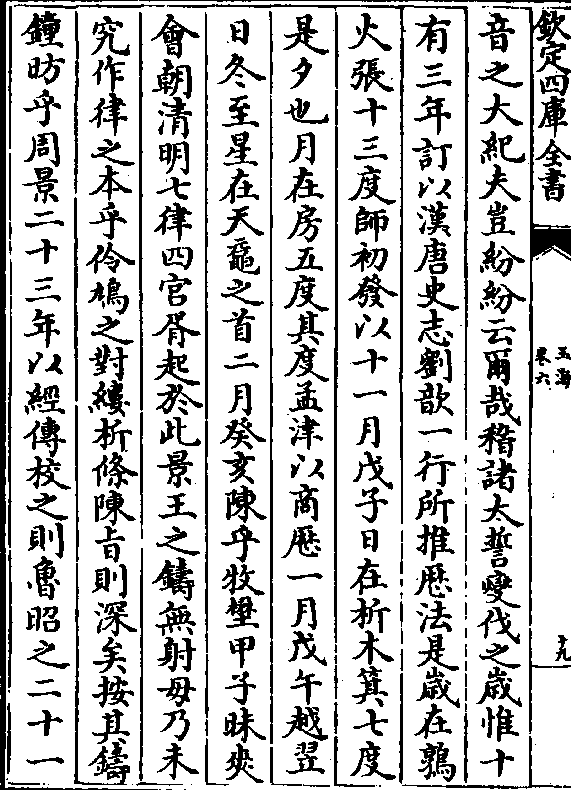 欽定四庫全書
玉海
卷六
十九
音之大紀夫豈紛紛云爾哉稽諸太誓燮伐之歲惟十
有三年訂以漢唐史志劉歆一行所推厯法是歲在鶉
火張十三度師初發以十一月戊子日在析木箕七度
是夕也月在房五度其度孟津以商厯一月戊午越翌
日冬至星在天黿之首二月癸亥陳乎牧壄甲子昧爽
會朝清明七律四宫胥起於此景王之鑄無射毋乃未
究作律之本乎伶鳩之對縷析條陳旨則深矣按其鑄
鐘昉乎周景二十三年以經傳校之則魯昭之二十一